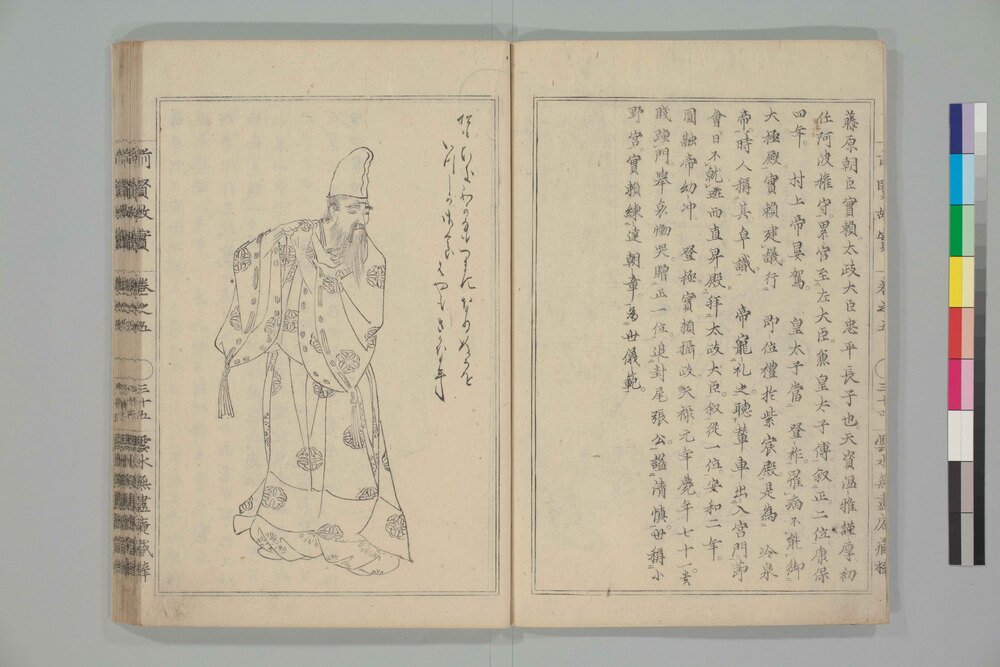 藤原朝臣實頼太政大臣忠平長子也天資温雅謹厚初
任阿波權守累官至左大臣兼皇太子傅叙正二位康保
四年 村上帝晏駕 皇太子當 登祚罹病不能御
大極殿實頼建議行 即位禮於紫宸殿是為 冷泉
帝時人稱其卓識 帝寵礼之聴輦車出入宮門節
會日不就班而直昇殿拜太政大臣叙從一位安和二年
圓融帝幼冲 登極實頼攝政天禄元年薨年七十一貴
賤踵門舉哀慟哭贈正一位追封尾張公謚清慎世稱小
野宮實頼練達朝章為世儀範
前賢故實 卷之五 三十五 雲水無盡庵藏梓